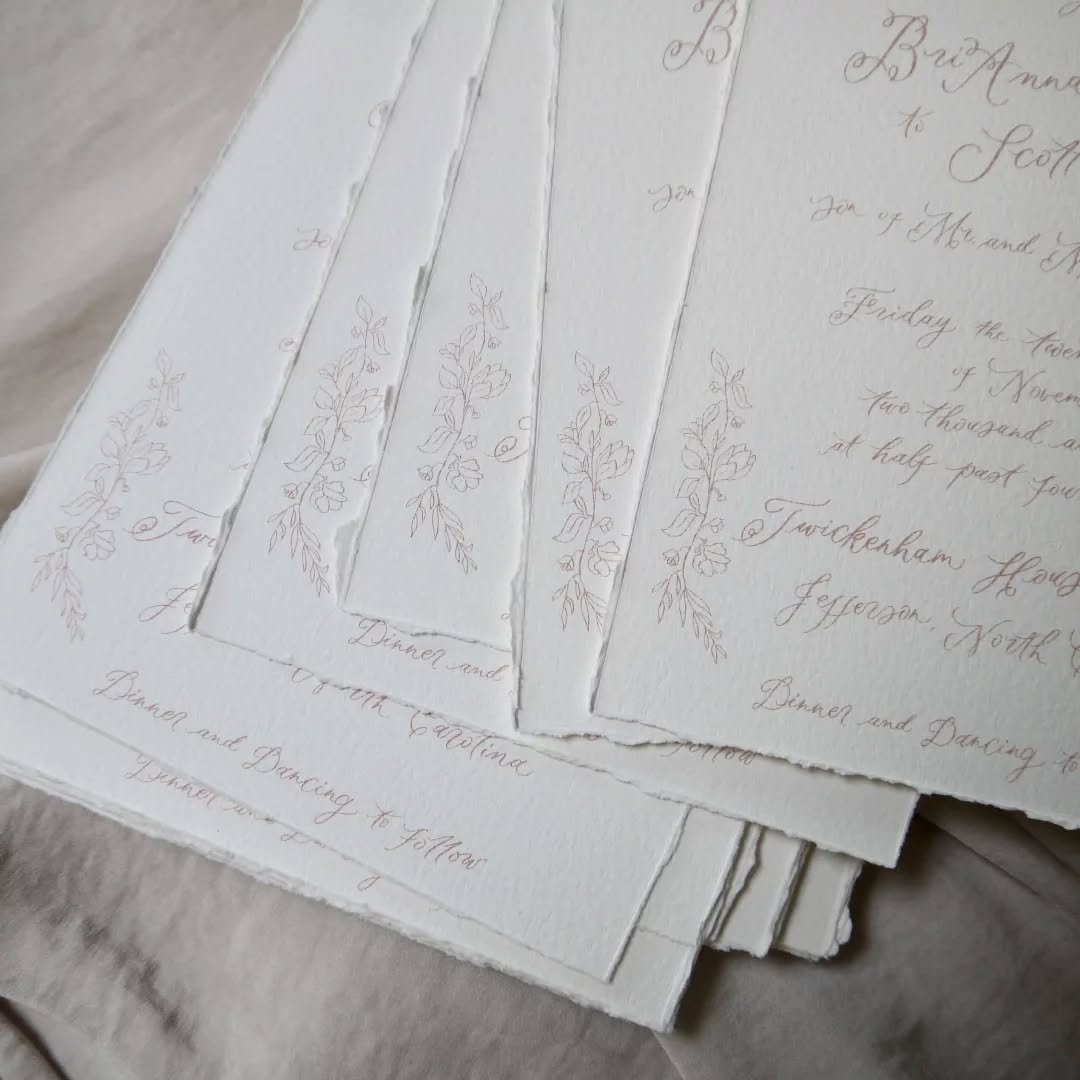 BriAnna
to
Scott
son of Mr. and
Friday the
of Novem
two thousand a
at half past four
Twickenham Hous
Jefferson, North C
Dinner and Dancing to
B
son
Follow
Dinner and
Carolina
Jo
Twic
Je
Dinner and Dancing to Follow
Dinner and